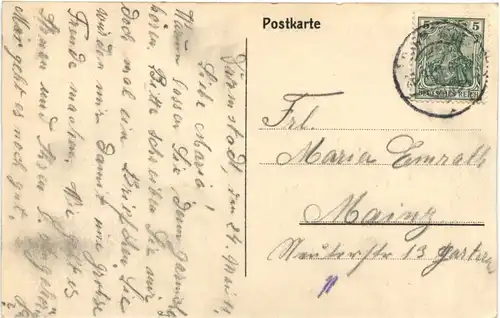 Postkarte
5 5
DEUTSCHES REICH
Darmstadt, den 24. Mai
Liebe Maria!
Warum lassen Sie denn garnichts
hören. Bitte schreiben Sie mir
doch mal ein Kärtchen. Sie
würden mir damit eine große
Freude machen. Wie geht es
Ihnen und Ihren
Mir geht es noch gut.
Frl.
Maria Emrath
Mainz
13 Garten